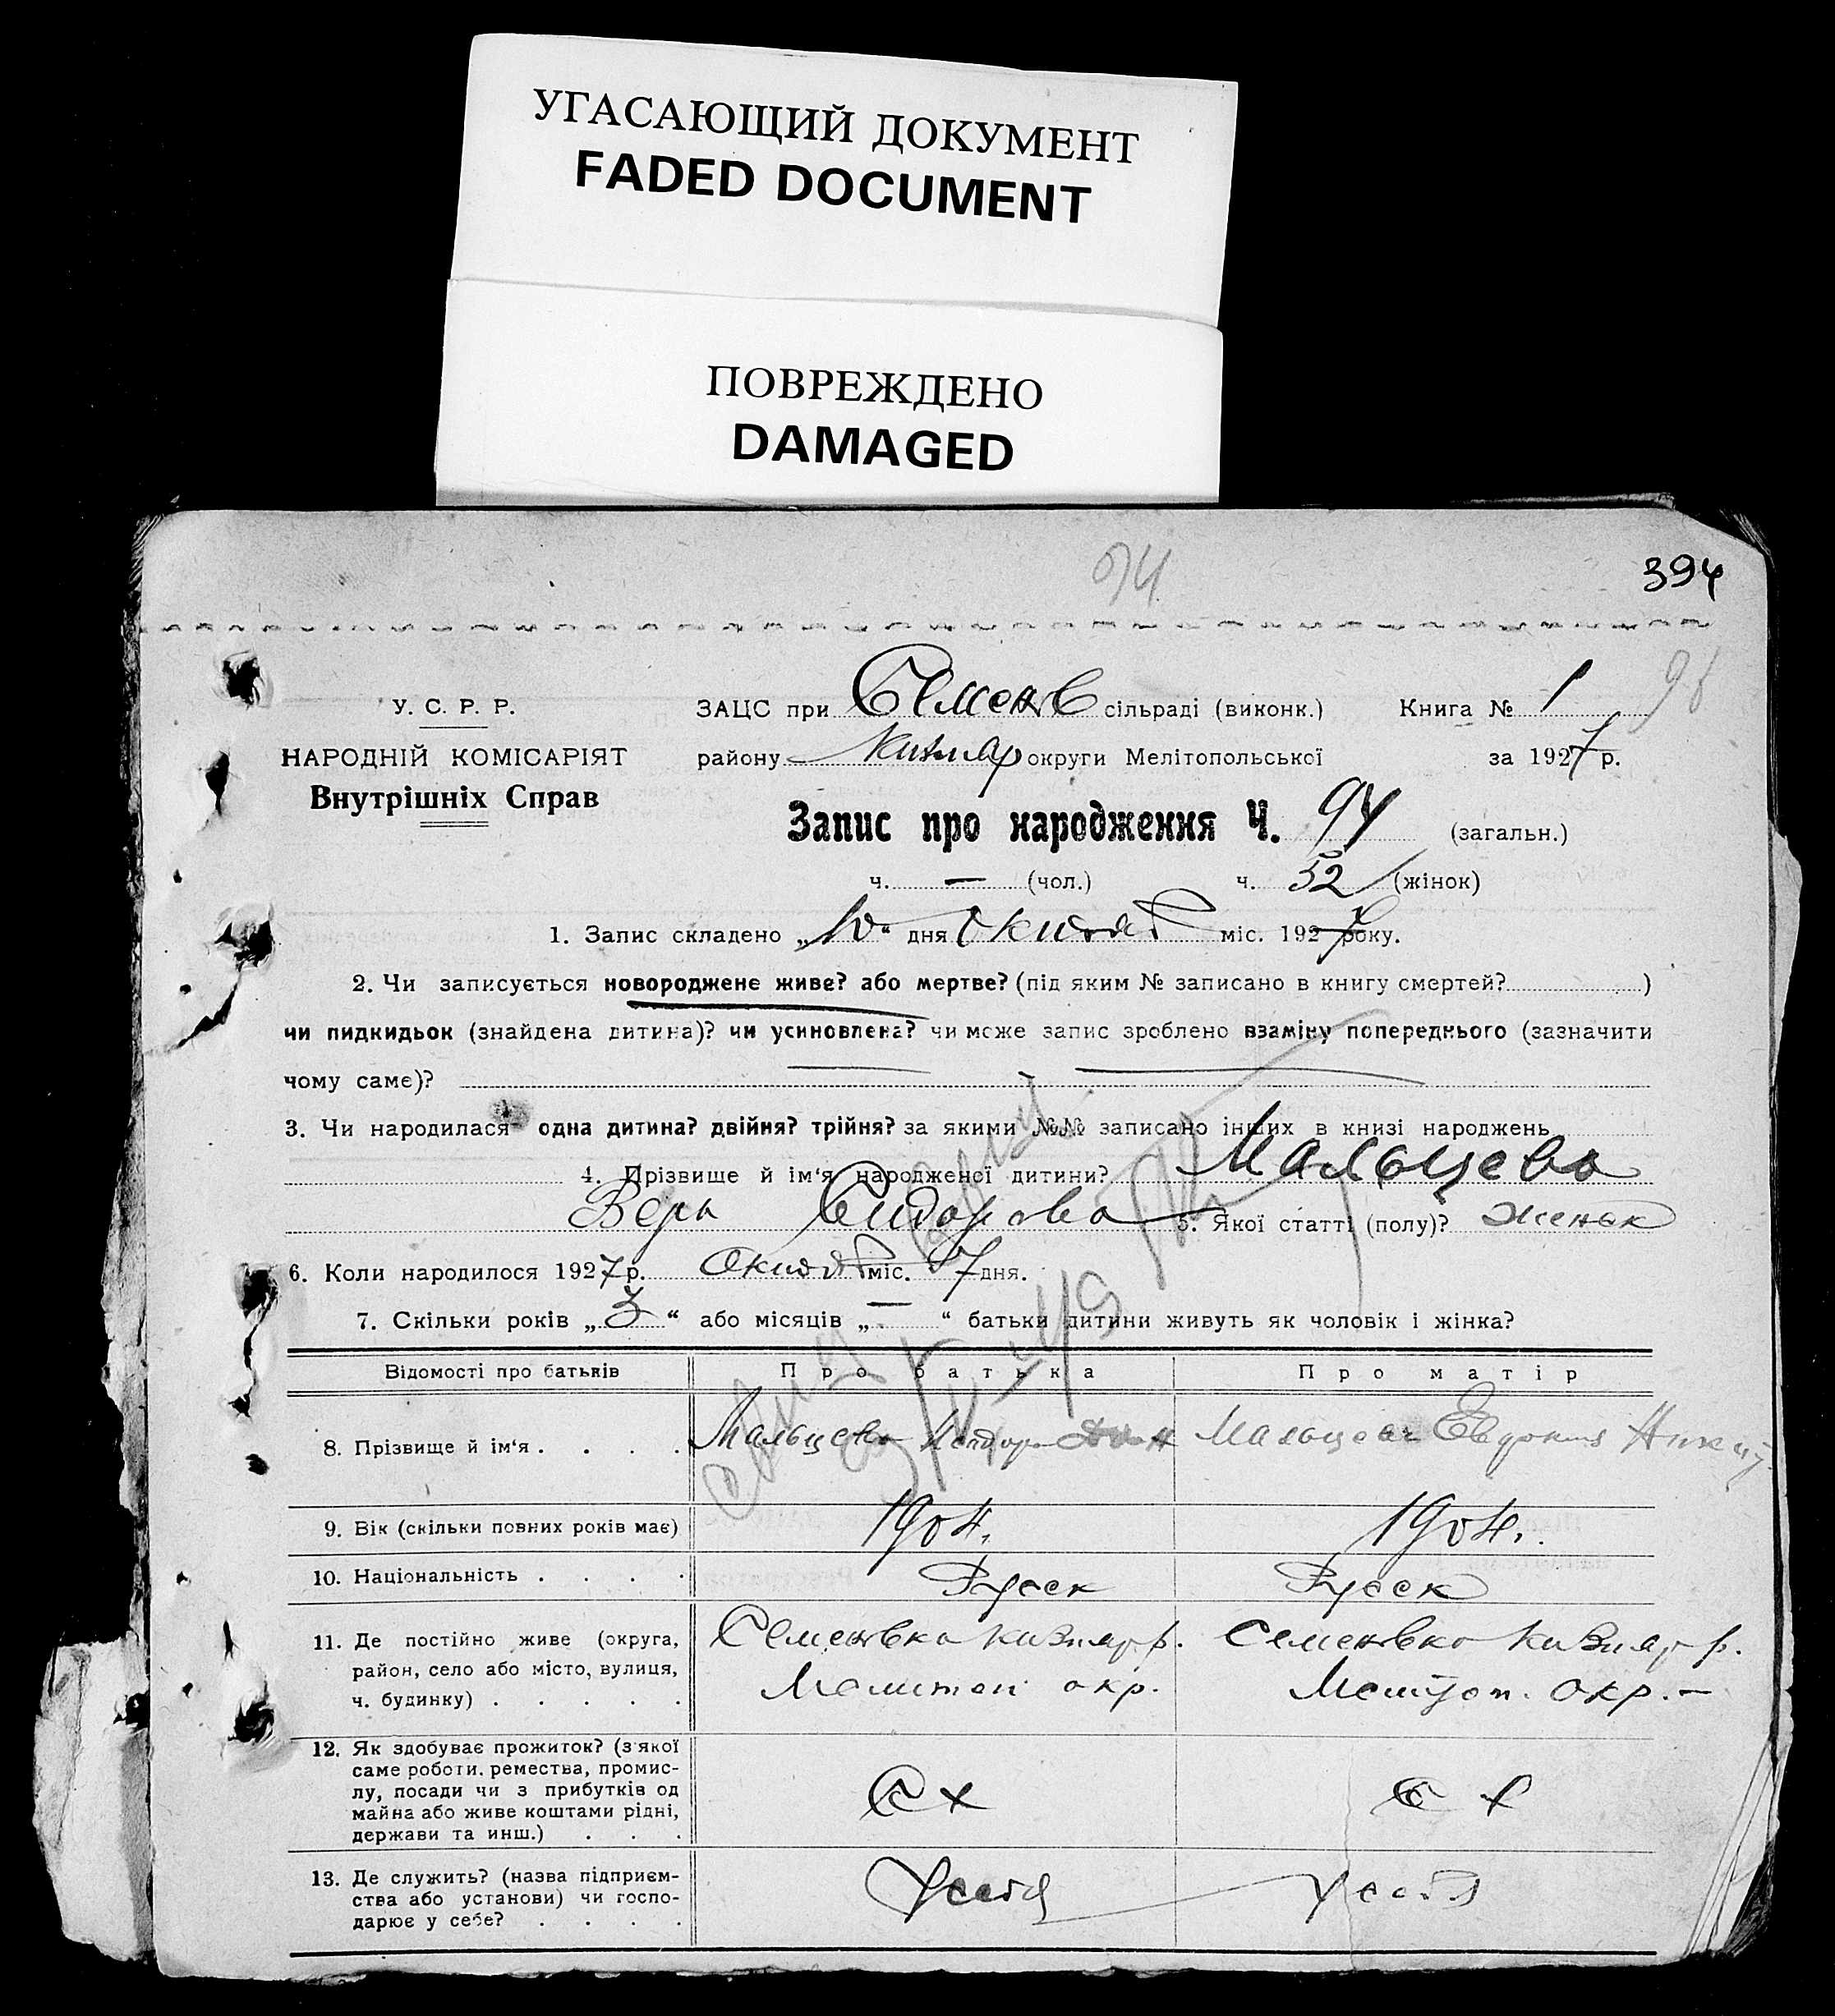 УГАСАЮЩИЙ ДОКУМЕНТ
FADED DOCUMENT
ПОВРЕЖДЕНО
DAMAGED
94
394
У. С. Р. Р.
ЗАЦС при Семенов сільраді (виконк.) Книга № 1
98
НАРОДНІЙ КОМІСАРІЯТ
району Кизияр округи Мелітопольської за 1927 р.
Внутрішніх Справ
Запис про народження Ч. 94 (загальн.)
ч. — (чол.) ч. 52 (жінок)
1. Запис складено „10“ дня міс. 1927 року.
2. Чи записується новороджене живе? або мертве? (під яким № записано в книгу смертей? )
чи пидкидьок (знайдена дитина)? чи усиновлена? чи може запис зроблено взаміну попереднього (зазначити
чому саме)?
3. Чи народилася одна дитина? двійня? трійня? за якими №№ записано інших в книзі народжень
4. Прізвище й ім‘я народженої дитини? Мальцева
Вера Сидорова 5. Якої статті (полу)? женск
6. Коли народилося 1927 р. міс. 7 дня.
7. Скільки років „3“ або місяців „—“ батьки дитини живуть як чоловік і жінка?
Відомості про батьків Про батька Про матір
8. Прізвище й ім‘я . . . . Мальцева Мальцева Евдокия
9. Вік (скільки повних років має) 1904. 1904.
10. Національність . . . . Русск Русск
11. Де постійно живе (округа, Семеновка Кизияр р. Семеновка Кизияр р.
район, село або місто, вулиця, Мелитоп окр. Мелитоп. окр. —
ч. будинку) . . . . .
12. Як здобуває прожиток? (з якої
саме роботи, ремества, промис-
лу, посади чи з прибутків од Сх Сх
майна або живе коштами рідні,
держави та инш.) . . .
13. Де служить? (назва підприєм-
ства або установи) чи госпо- у себя у себя
дарює у себе? . . . .